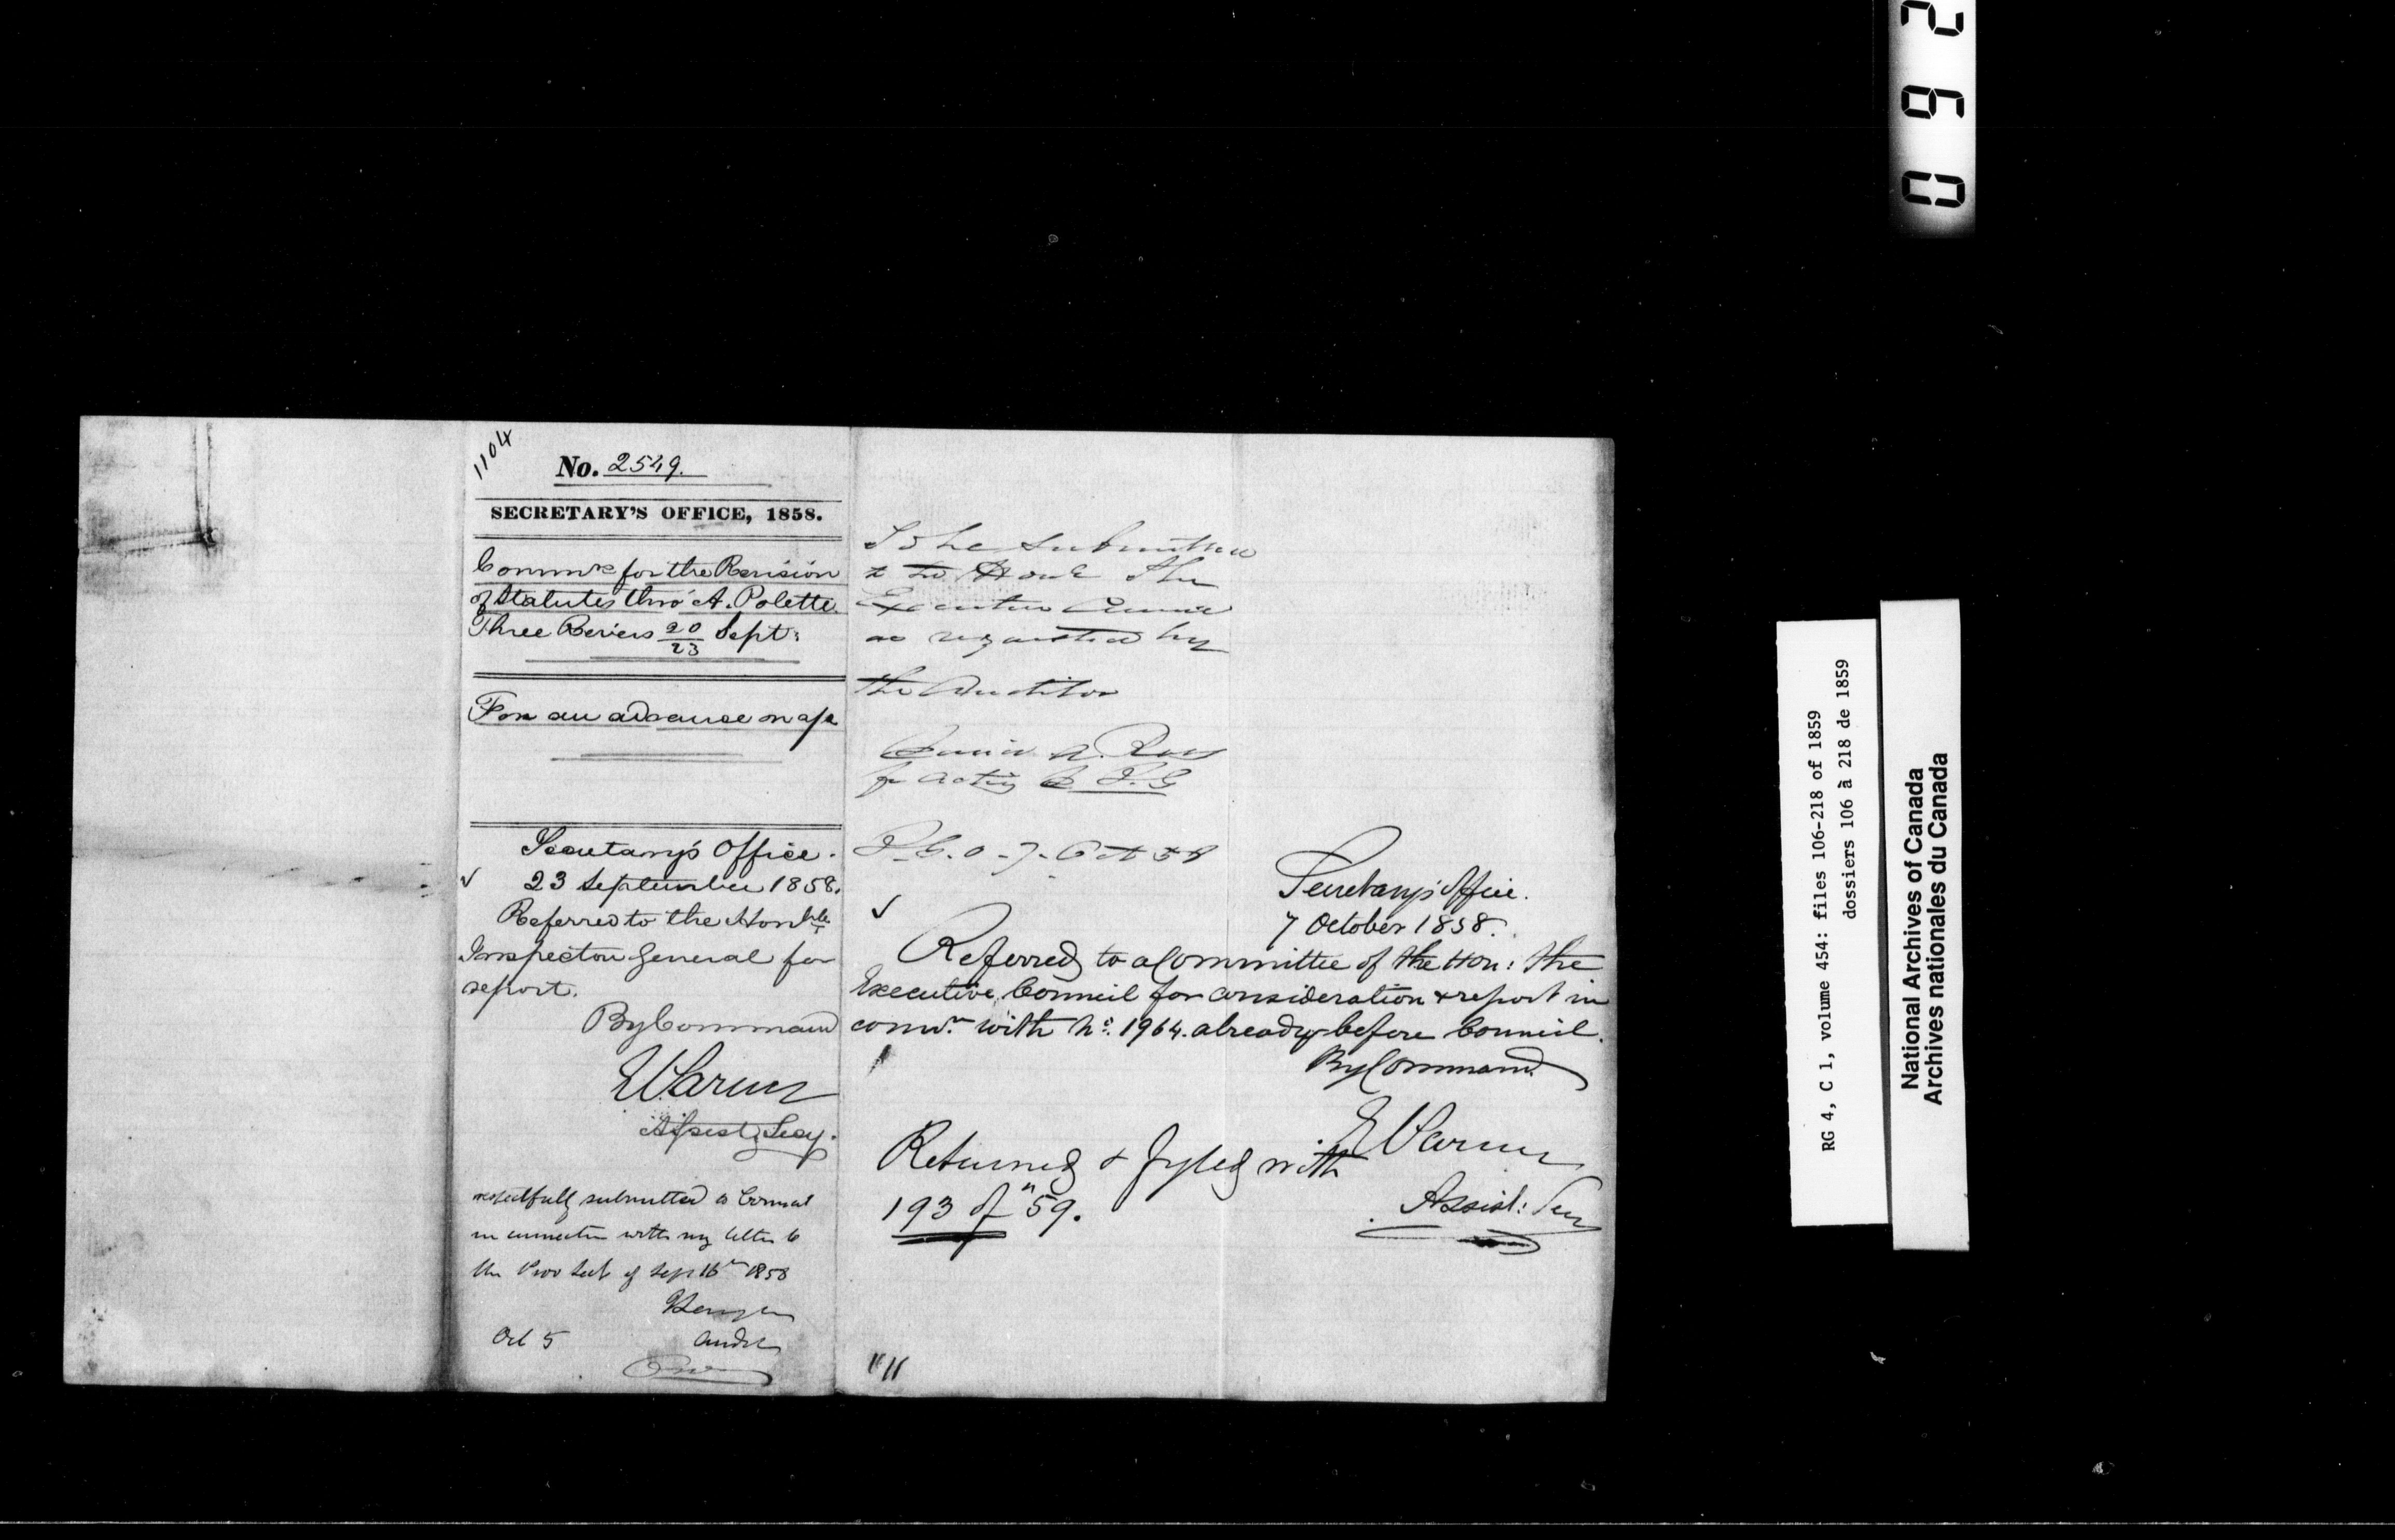 1104
No. 2549.
SECRETARY'S OFFICE, 1858.
Commrs for the Revision
of Statutes thro' A. Polette
Three Rivers 20/23 Sept:
For an advance on a/c
Secretary's Office.
✓ 23 September 1858.
Referred to the Honble
Inspector General for
report.
By Command
E Parent
Assist. Secy.
respectfully submitted to Council
in connection with my letter to
the Prov Sect of Sept 16th 1858
Oct 5
Audr
To be submitted
to the Honble The
Executive Council
as requested by
the Auditor
for acting D I. G
I. G. O. 7. Oct 58
Secretary's Office.
7 October 1858.
✓
Referred to a Committee of the Hon: the
Executive Council for consideration & report in
connn with No. 1964. already before Council.
By Command
E Parent
Assist: Secy
Returned & fyled with
193 of "59.
RG 4, C 1, volume 454: files 106-218 of 1859
dossiers 106 à 218 de 1859
National Archives of Canada
Archives nationales du Canada
0 6 2